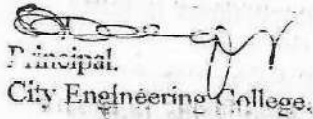 Principal.
City Engineering College.